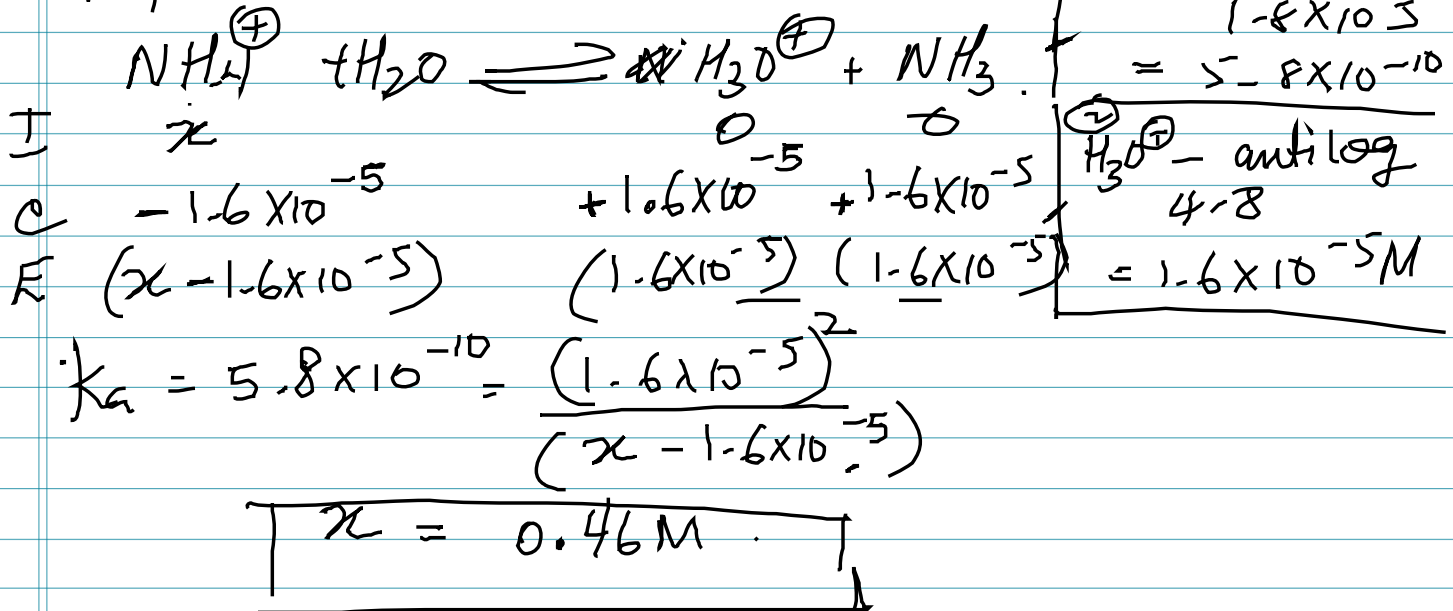 NH₄⊕ + H₂O ⇌ H₃O⊕ + NH₃
I x 0 0
C - 1.6 x10⁻⁵ + 1.6 x10⁻⁵ + 1.6 x10⁻⁵
E (x - 1.6x10⁻⁵) (1.6x10⁻⁵) (1.6x10⁻⁵)
ka = 5.8 x10⁻¹⁰ = (1.6 x10⁻⁵)²
(x - 1.6x10⁻⁵)
x = 0.46 M
1.8 X10 5
= 5.8 x10⁻¹⁰
H₃O⊕ - antilog
4.8
= 1.6 x 10⁻⁵ M